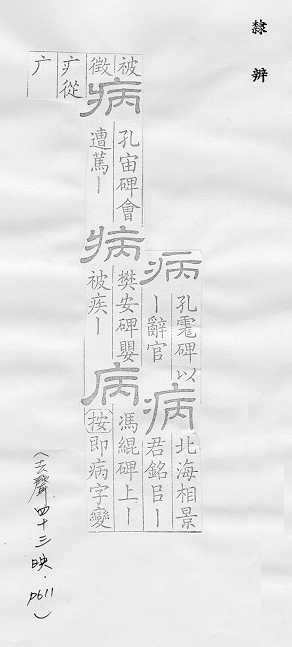 隸辨
病
孔碑以
丨辭官
病
北海相景
君銘臣丨
被
徵
病
孔宙碑會
遭篤丨
病
樊安碑嬰
被疾丨
病
馮緄碑上丨
按即病字變
疒從
广
(去聲四十三映．p611)